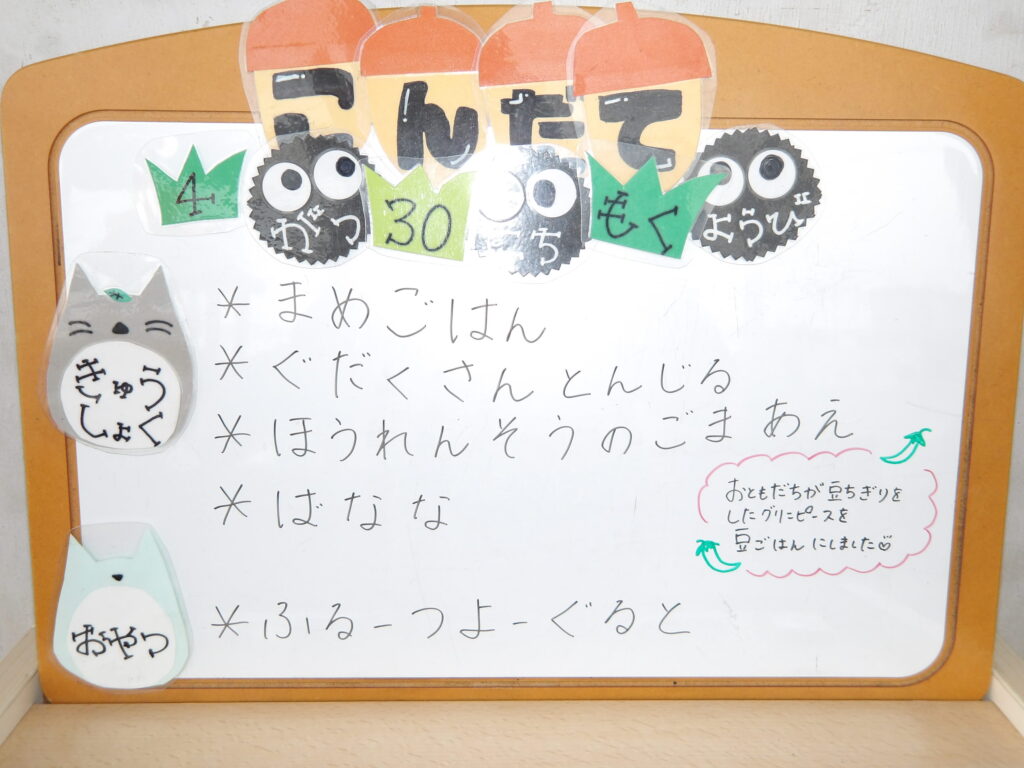 こんだて
4 がつ 30 にち もく ようび
きゅうしょく
* まめごはん
* ぐだくさんとんじる
* ほうれんそうのごまあえ
* ばなな
おともだちが豆ちぎりを
したグリーンピースを
豆ごはんにしました♡
おやつ
* ふるーつよーぐると